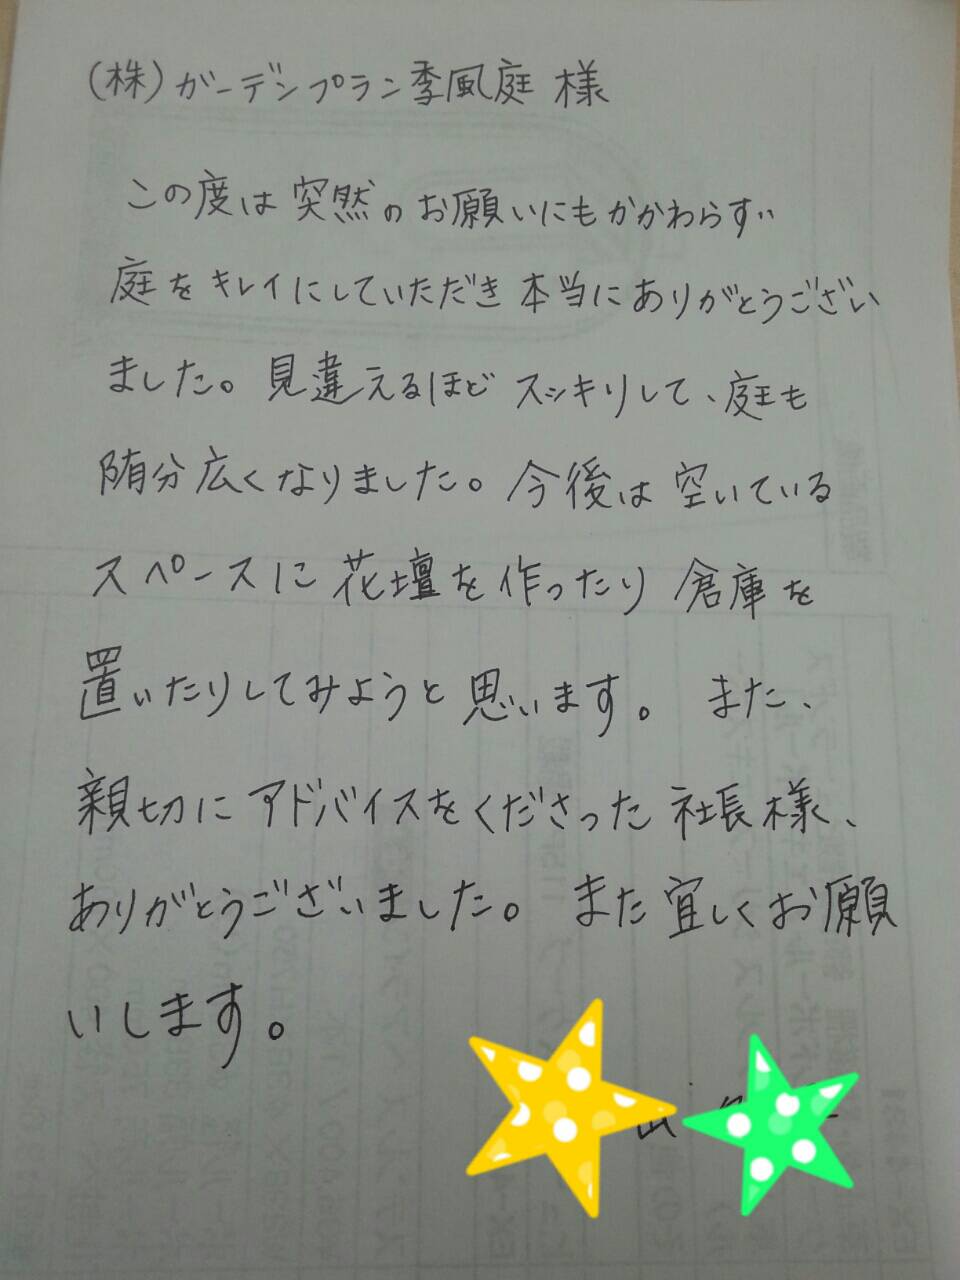 (株)ガーデンプラン季風庭 様
この度は突然のお願いにもかかわらず
庭をキレイにしていただき本当にありがとうござい
ました。見違えるほどスッキリして、庭も
随分広くなりました。今後は空いている
スペースに花壇を作ったり倉庫を
置いたりしてみようと思います。また、
親切にアドバイスをくださった社長様、
ありがとうございました。また宜しくお願
いします。